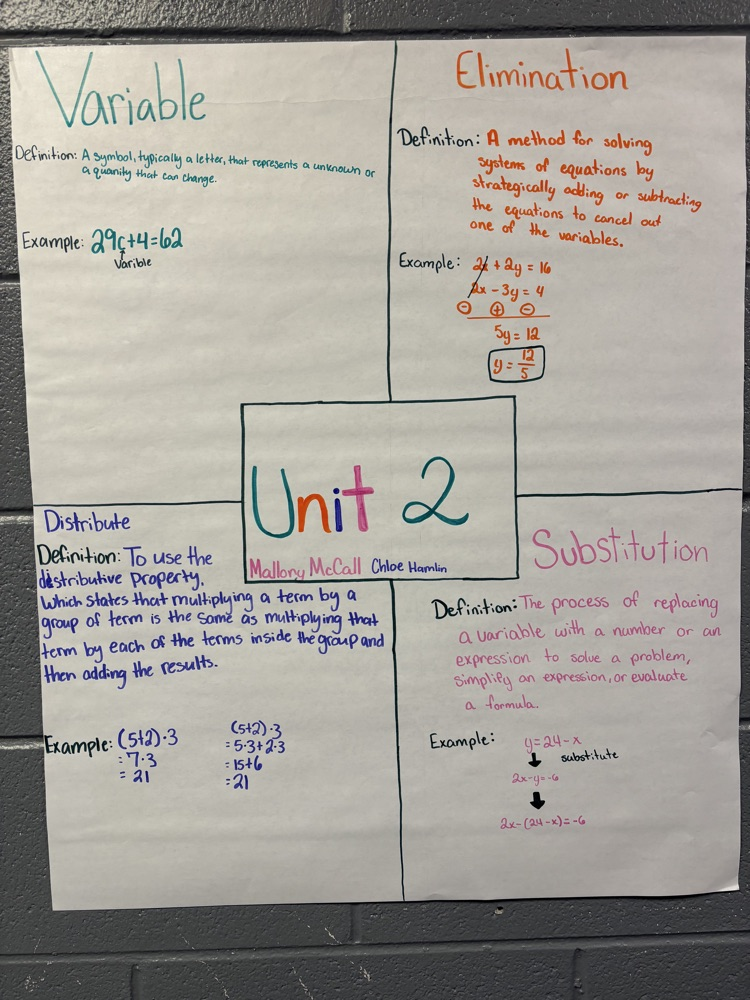 Variable
Definition: A symbol, typically a letter, that represents a unknown or
a quanity that can change.
Example: 29c+4=62
Varible
Elimination
Definition: A method for solving
systems of equations by
strategically adding or subtracting
the equations to cancel out
one of the variables.
Example: 2x + 2y = 16
2x - 3y = 4
⊖ ⊕ ⊖
5y = 12
y = 12/5
Unit 2
Mallory McCall Chloe Hamlin
Distribute
Definition: To use the
distributive property.
Which states that multiplying a term by a
group of term is the same as multiplying that
term by each of the terms inside the group and
then adding the results.
Example: (5+2)·3
= 7·3
= 21
(5+2)·3
= 5·3+2·3
= 15+6
= 21
Substitution
Definition: The process of replacing
a variable with a number or an
expression to solve a problem,
simplify an expression, or evaluate
a formula.
Example: y=24-x
substitute
2x-y=-6
2x-(24-x)=-6